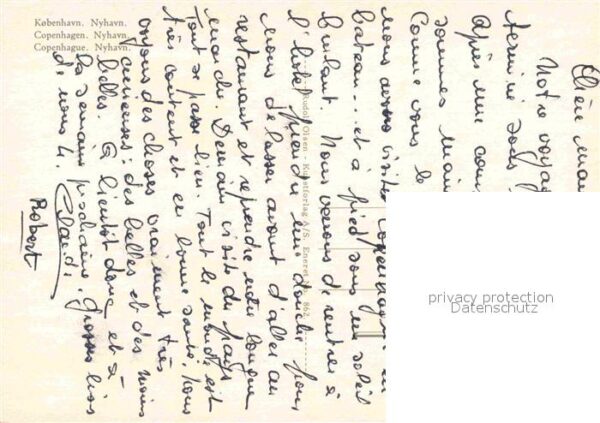 København. Nyhavn.
Copenhagen. Nyhavn.
Copenhague. Nyhavn.
Rudolf Olsen - Kunstforlag A/S. Eneret 862
Chère mam
Notre voyag
terminé sous
après une cou
sommes main
Comme vous le
nous avons visité Copenhague en
bateau... et à pied sous un soleil
brûlant. Nous venons de rentrer à
l'hôtel prendre une douche pour
nous délasser avant d'aller au
restaurant et reprendre notre longue
marche. Demain visite du pays
Tout se passe bien. Tout le monde est
très content et en bonne santé. Nous
voyons des choses vraiment très
curieuses : des belles et des moins
belles. A bientôt donc et à
la semaine prochaine. Grosses bises
de nous 4. Claude
Robert
privacy protection
Datenschutz